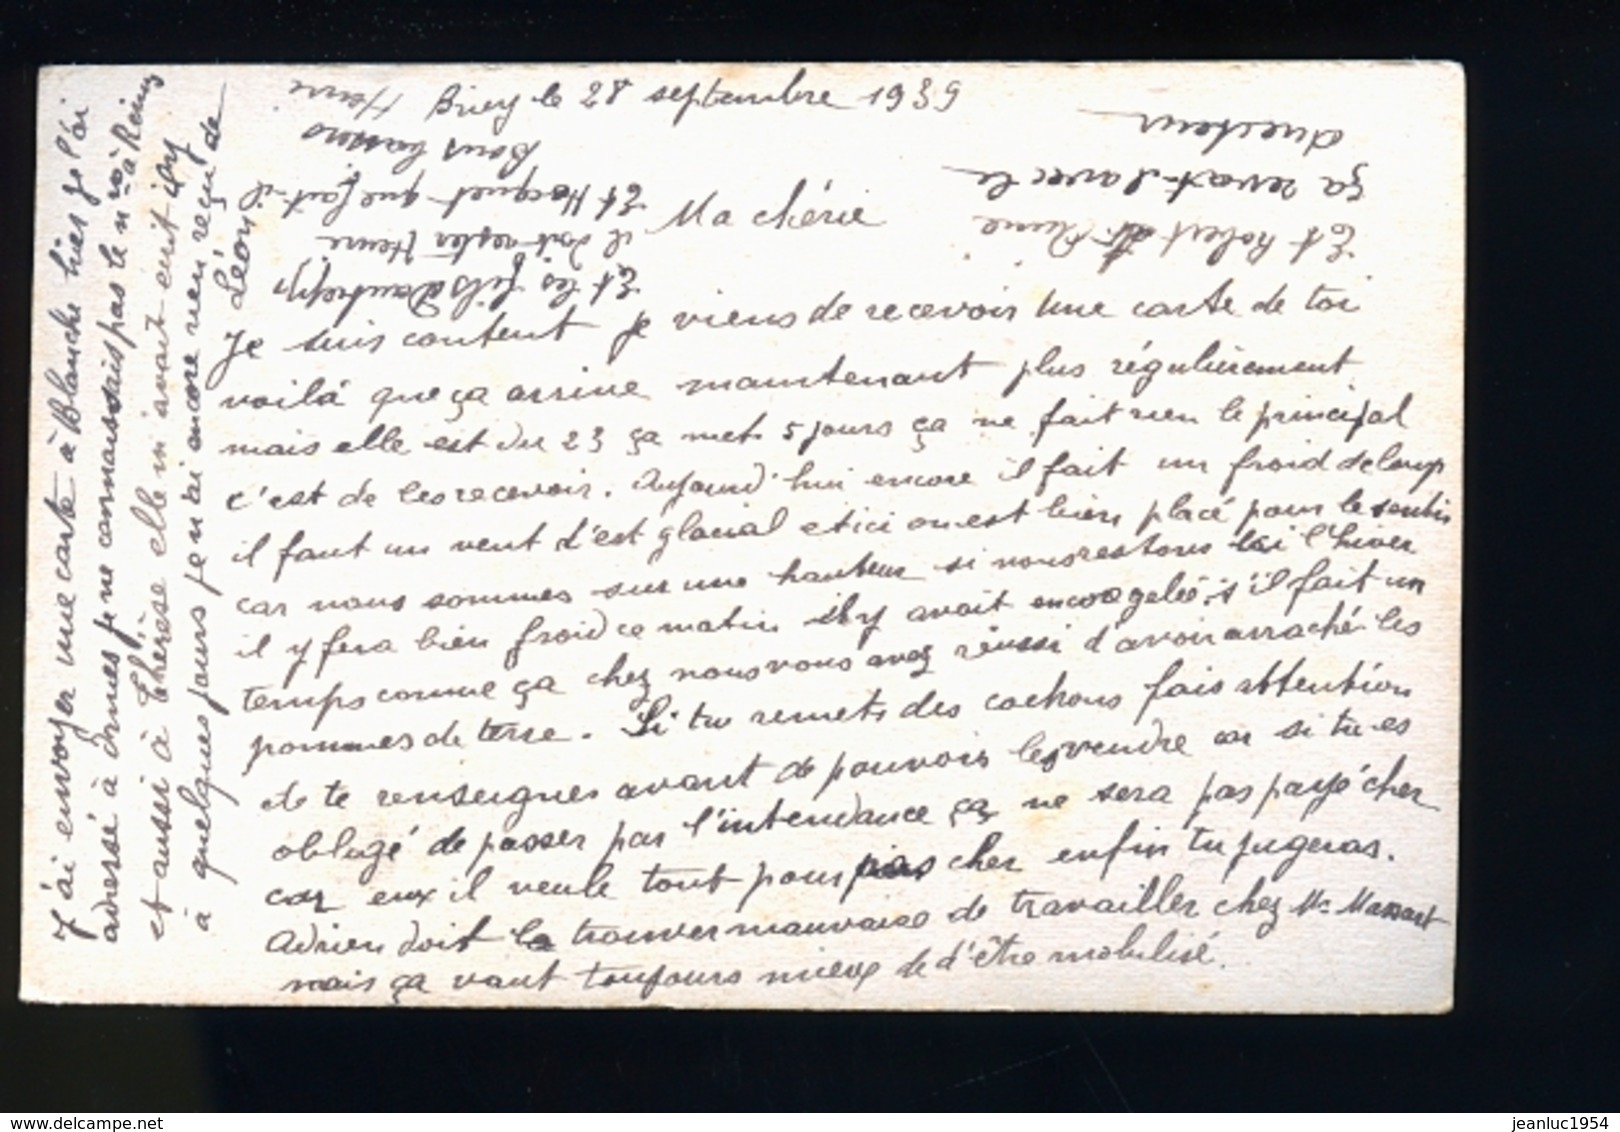 Briey le 28 septembre 1939
Ma chérie
Je suis content je viens de recevoir une carte de toi
voilà que ça arrive maintenant plus régulièrement
mais elle est du 23 ça met 5 jours ça ne fait rien le principal
c'est de les recevoir. Aujourd'hui encore il fait un froid de loup
il fait un vent d'est glacial et ici on est bien placé pour le sentir
car nous sommes sur une hauteur si nous restons ici l'hiver
il y fera bien froid ce matin il y avait encore gelé, s'il fait un
temps comme ça chez nous vous avez réussi d'avoir arraché les
pommes de terre. Si tu remets des cochons fais attention
de te renseigner avant de pouvoir les vendre car si tu es
obligé de passer par l'intendance ça ne sera pas payé cher
car eux il veule tout pour pas cher enfin tu jugeras.
Adrien doit la trouver mauvaise de travailler chez Mr Massart
mais ça vaut toujours mieux de d'être mobilisé.
J'ai envoyer une carte à Blanche hier je l'ai
adressé à je ne connaissais pas le no à Reims
et aussi à Thérèse elle m'avait écrit il y
à quelques jours je n'ai encore rien reçu de
Léon
Et Robert
ça revat-il avec le
directeur
Et les fils
il doit rester Henri
Et Hocquet que fait-il
Bons baisers
Henri
jeanluc1954
www.delcampe.net